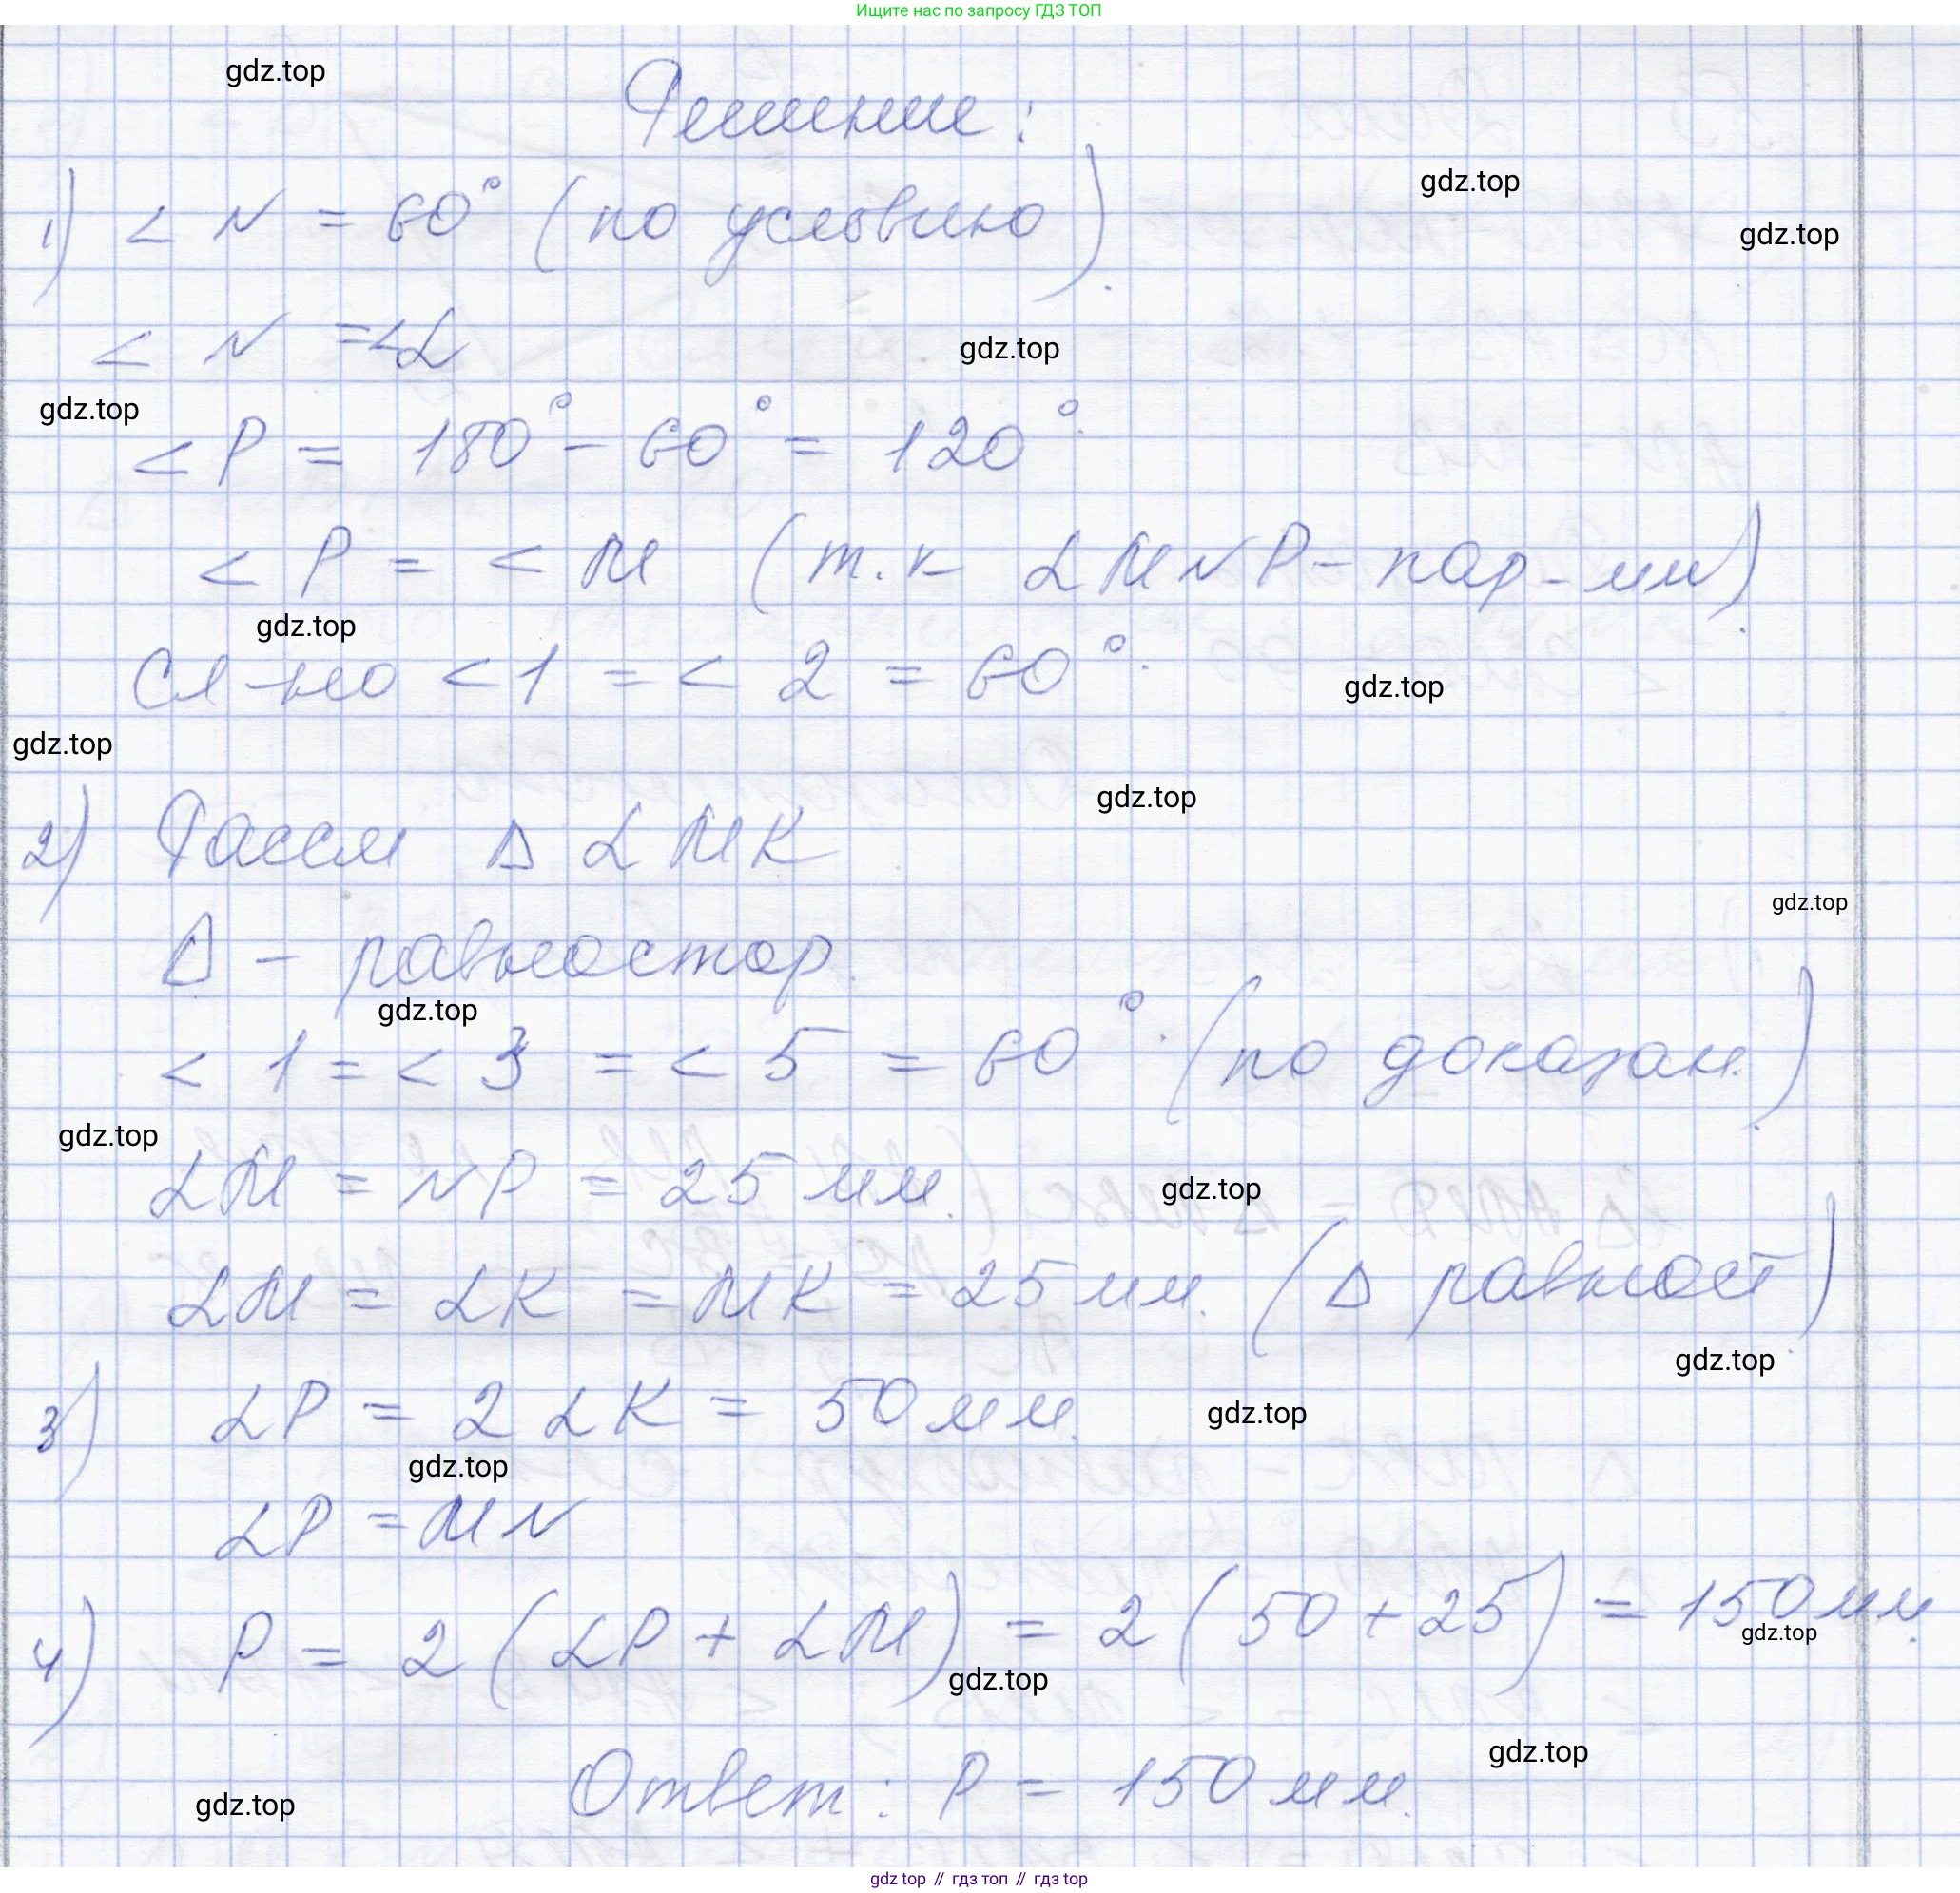 Ищите нас по запросу ГДЗ ТОП
gdz.top
Решение:
gdz.top
1) < N = 60° (по условию).
gdz.top
< N = < L
gdz.top
gdz.top
< P = 180° - 60° = 120°.
< P = < M (т.к LMNP - пар-мм).
gdz.top
Сл-но < 1 = < 2 = 60°.
gdz.top
gdz.top
gdz.top
2) Рассм Δ LMK
gdz.top
Δ - равностор.
gdz.top
< 1 = < 3 = < 5 = 60°. (по доказан.).
gdz.top
LM = NP = 25 мм.
gdz.top
LM = LK = MK = 25 мм. (Δ равност).
gdz.top
3) LP = 2 LK = 50 мм.
gdz.top
gdz.top
LP = MN
4) P = 2 (LP + LM) = 2 (50 + 25) = 150 мм.
gdz.top
gdz.top
gdz.top
Ответ: P = 150 мм.
gdz.top
gdz.top // гдз топ // гдз top